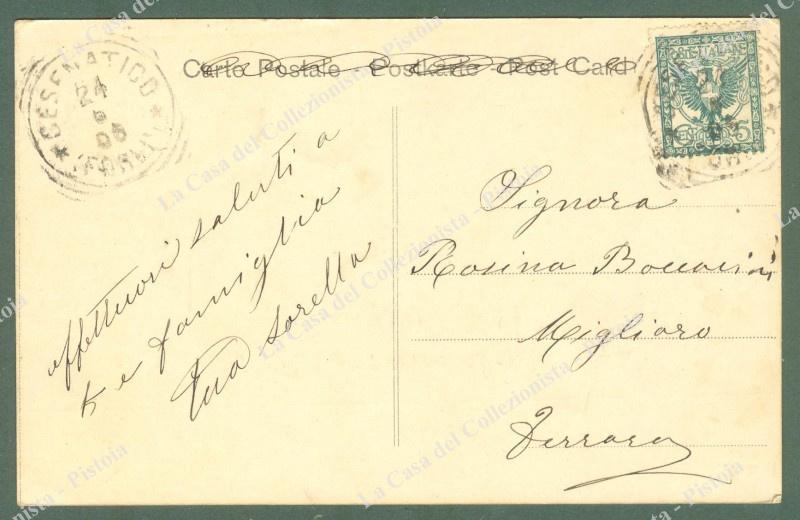 Carte Postale Postkarte Post Card
CESENATICO
24
6
06
(FORLÌ)
POSTE ITALIANE
CENT. 5
affettuosi saluti a
te e famiglia
tua sorella
Signora
Rosina
Migliaro
Ferrara
La Casa del Collezionista - Pistoia